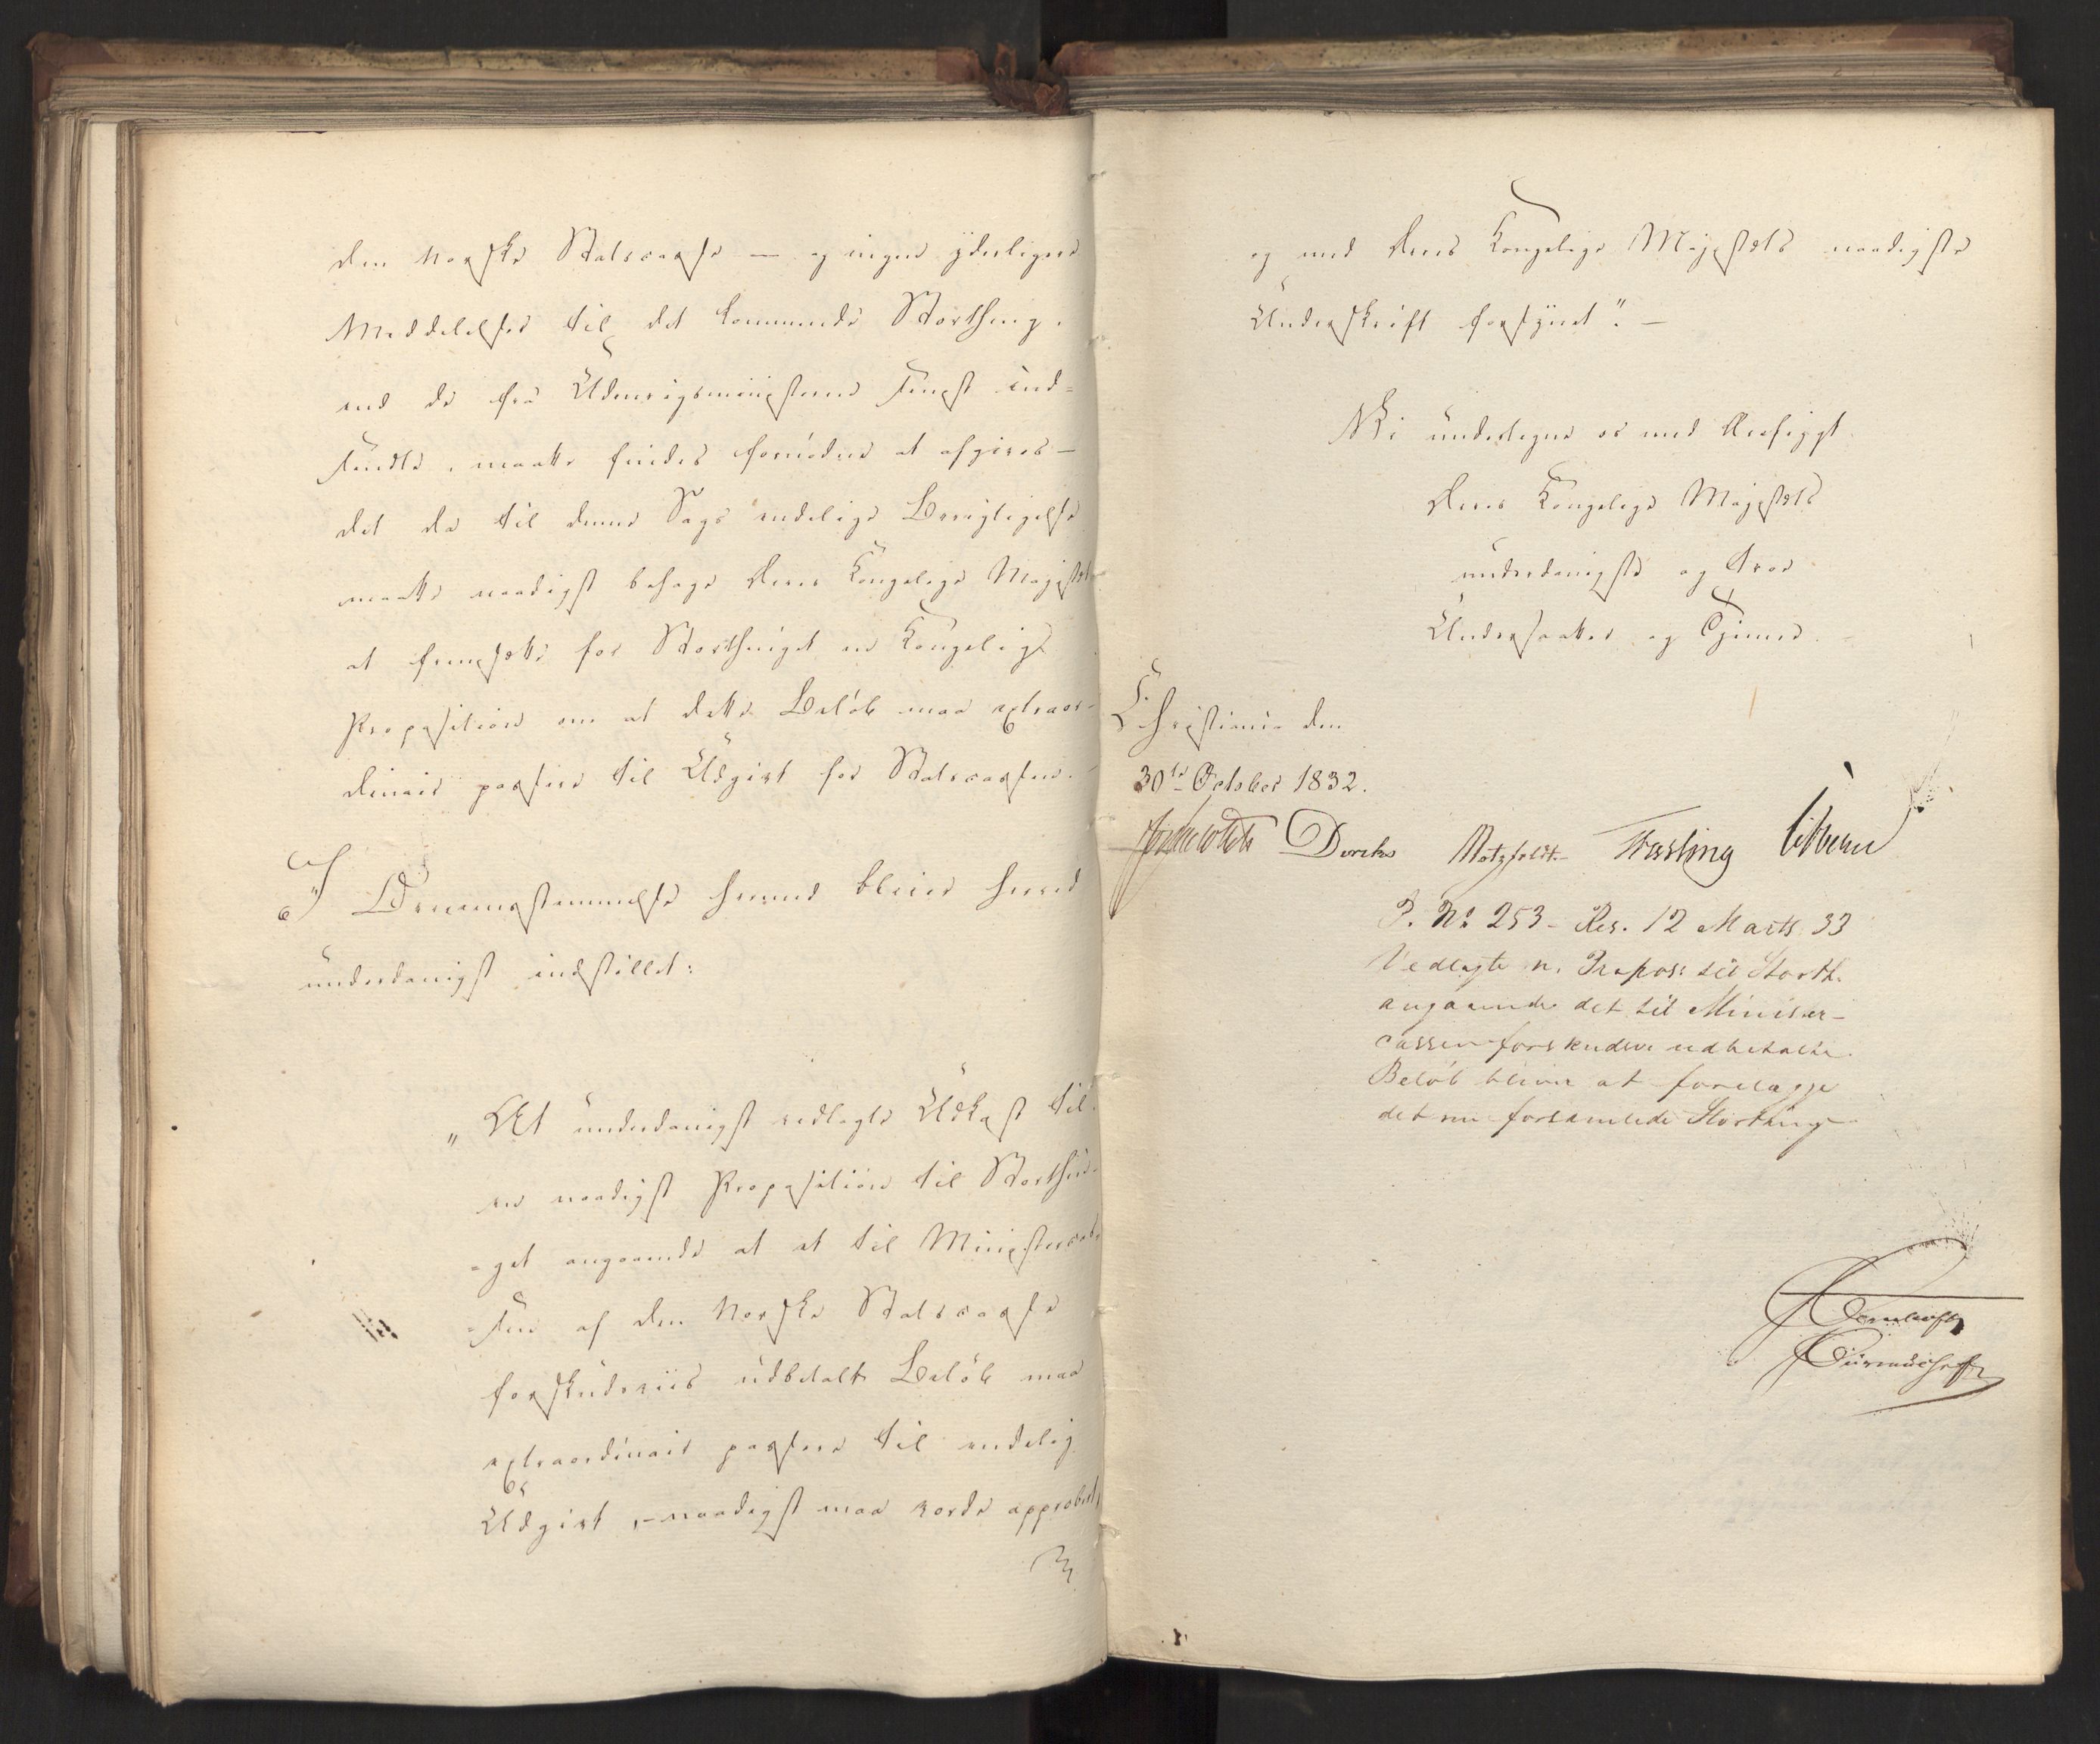 den norske Statscasse — og ingen yderligere
Meddelelser til det kommende Storthing,
end de fra Udenrigsministeren senest ind-
sendte, maatte findes fornødne at afgives —
det da til denne Sags endelige Berigtigelse
maatte naadigst behage Deres Kongelige Majestæt
at fremsætte for Storthinget en Kongelig
Proposition om at dette Beløb maa extraor-
dinair passere til Udgivt for Statscassen. —
I Overeensstemmelse hermed bliver herved
underdanigst indstillet:
„At underdanigst vedlagte Udkast til
en naadigst Proposition til Storthin-
=get angaaende at et til Ministercas-
=sen af den norske Statscasse
forskudsviis udbetalt Beløb maa
extraordinair passere til endelig
Udgivt, – naadigst maa vorde approberet,
og med Deres Kongelige Majestæts naadigste
Underskrift forsynet". —
Vi undertegne os med Ærefrygt
Deres Kongelige Majestæts
underdanigste og troe
Undersaatter og Tjenere.
Christiania den
30te October 1832.
Motzfeldt. Fasting
P. No 253 - Res. 12 Marts 33
Vedlagte n. Propos: til Storth.
angaaende det til Minister-
cassen forskudsv. udbetalte
Beløb bliver at forelægge
det nu forsamlede Storthing